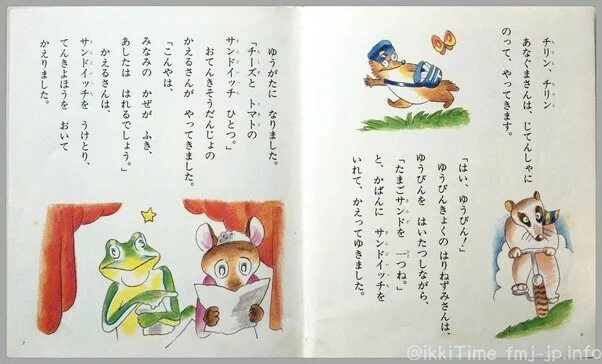 チリン、チリン
あなぐまさんは、じてんしゃに
のって、やってきます。
「はい、ゆうびん!」
ゆうびんきょくの はりねずみさんは、
ゆうびんを はいたつしながら、
「たまごサンドを 一つね。」
と、かばんに サンドイッチを
いれて、かえってゆきました。
6
ゆうがたに なりました。
「チーズと トマトの
サンドイッチ ひとつ。」
おてんきそうだんじょの
かえるさんが やってきました。
「こんやは、
みなみの かぜが ふき、
あしたは はれるでしょう。」
かえるさんは、
サンドイッチを うけとり、
てんきよほうを おいて
かえりました。
7
@ikkiTime fmj-jp.info